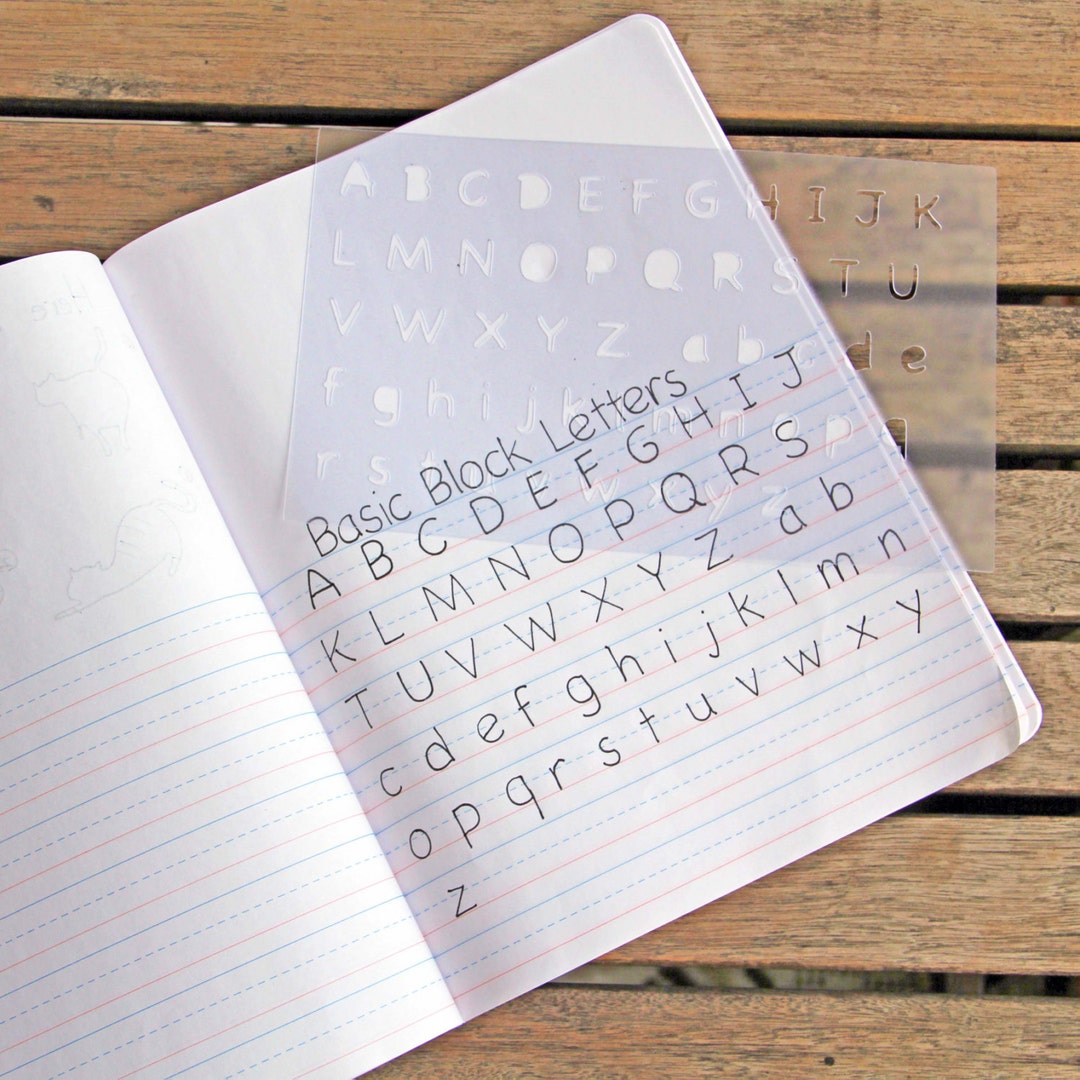 A B C D E F G H I J K
L M N O P Q R S T U
V W X Y Z a b c d e
f g h i j k l m n o p q
r s t u v w x y z
Basic Block Letters
A B C D E F G H I J
K L M N O P Q R S
T U V W X Y Z a b
c d e f g h i j k l m n
o p q r s t u v w x y
z